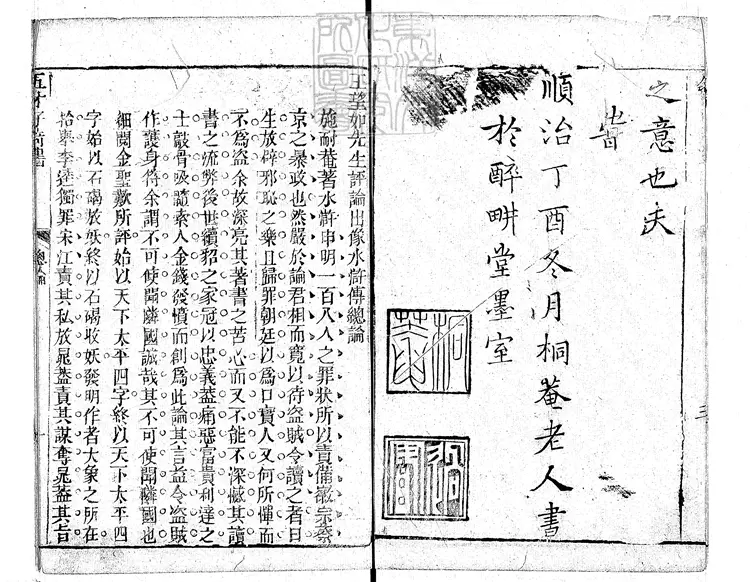 之意也夫
峕
順治丁酉冬月桐菴老人書
於醉畊堂墨室
王望如先生評論出像水滸傳總論
施耐菴著水滸申明一百八人之罪狀所以責備徽宗蔡
京之暴政也然嚴於論君相而寬以待盜賊令讀之者日
生放辟邪恥之樂且歸罪朝廷以為口實人又何所憚而
不為盜余故深亮其著書之苦心而又不能不深憾其讀
書之流弊後世續貂之家冠以忠義蓋痛惡富貴利達之
士敲骨吸髓索人金錢發憤而創為此論其言益令盜賊
作護身符余謂不可使聞薩國誠哉其不可使聞薩國也
細閱金聖歎所評始以天下太平四字終以天下太平四
字始以石碣放妖終以石碣收妖發明作者大象之所在
抬舉李逵獨罪宋江責其私放晁蓋責其謀奪晁蓋其旨
五才子